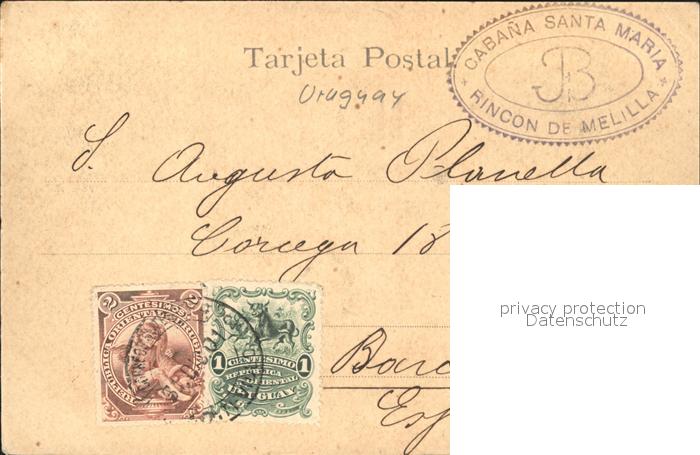 CABAÑA SANTA MARIA
JB
RINCON DE MELILLA
Tarjeta Postal
Uruguay
S. Augusto Planella
Corcega 18
privacy protection
Datenschutz
2 CENTESIMOS 2
REPUBLICA ORIENTAL DEL URUGUAY
1 CENTESIMO 1
REPUBLICA
ORIENTAL
URUGUAY
Barc
Esp